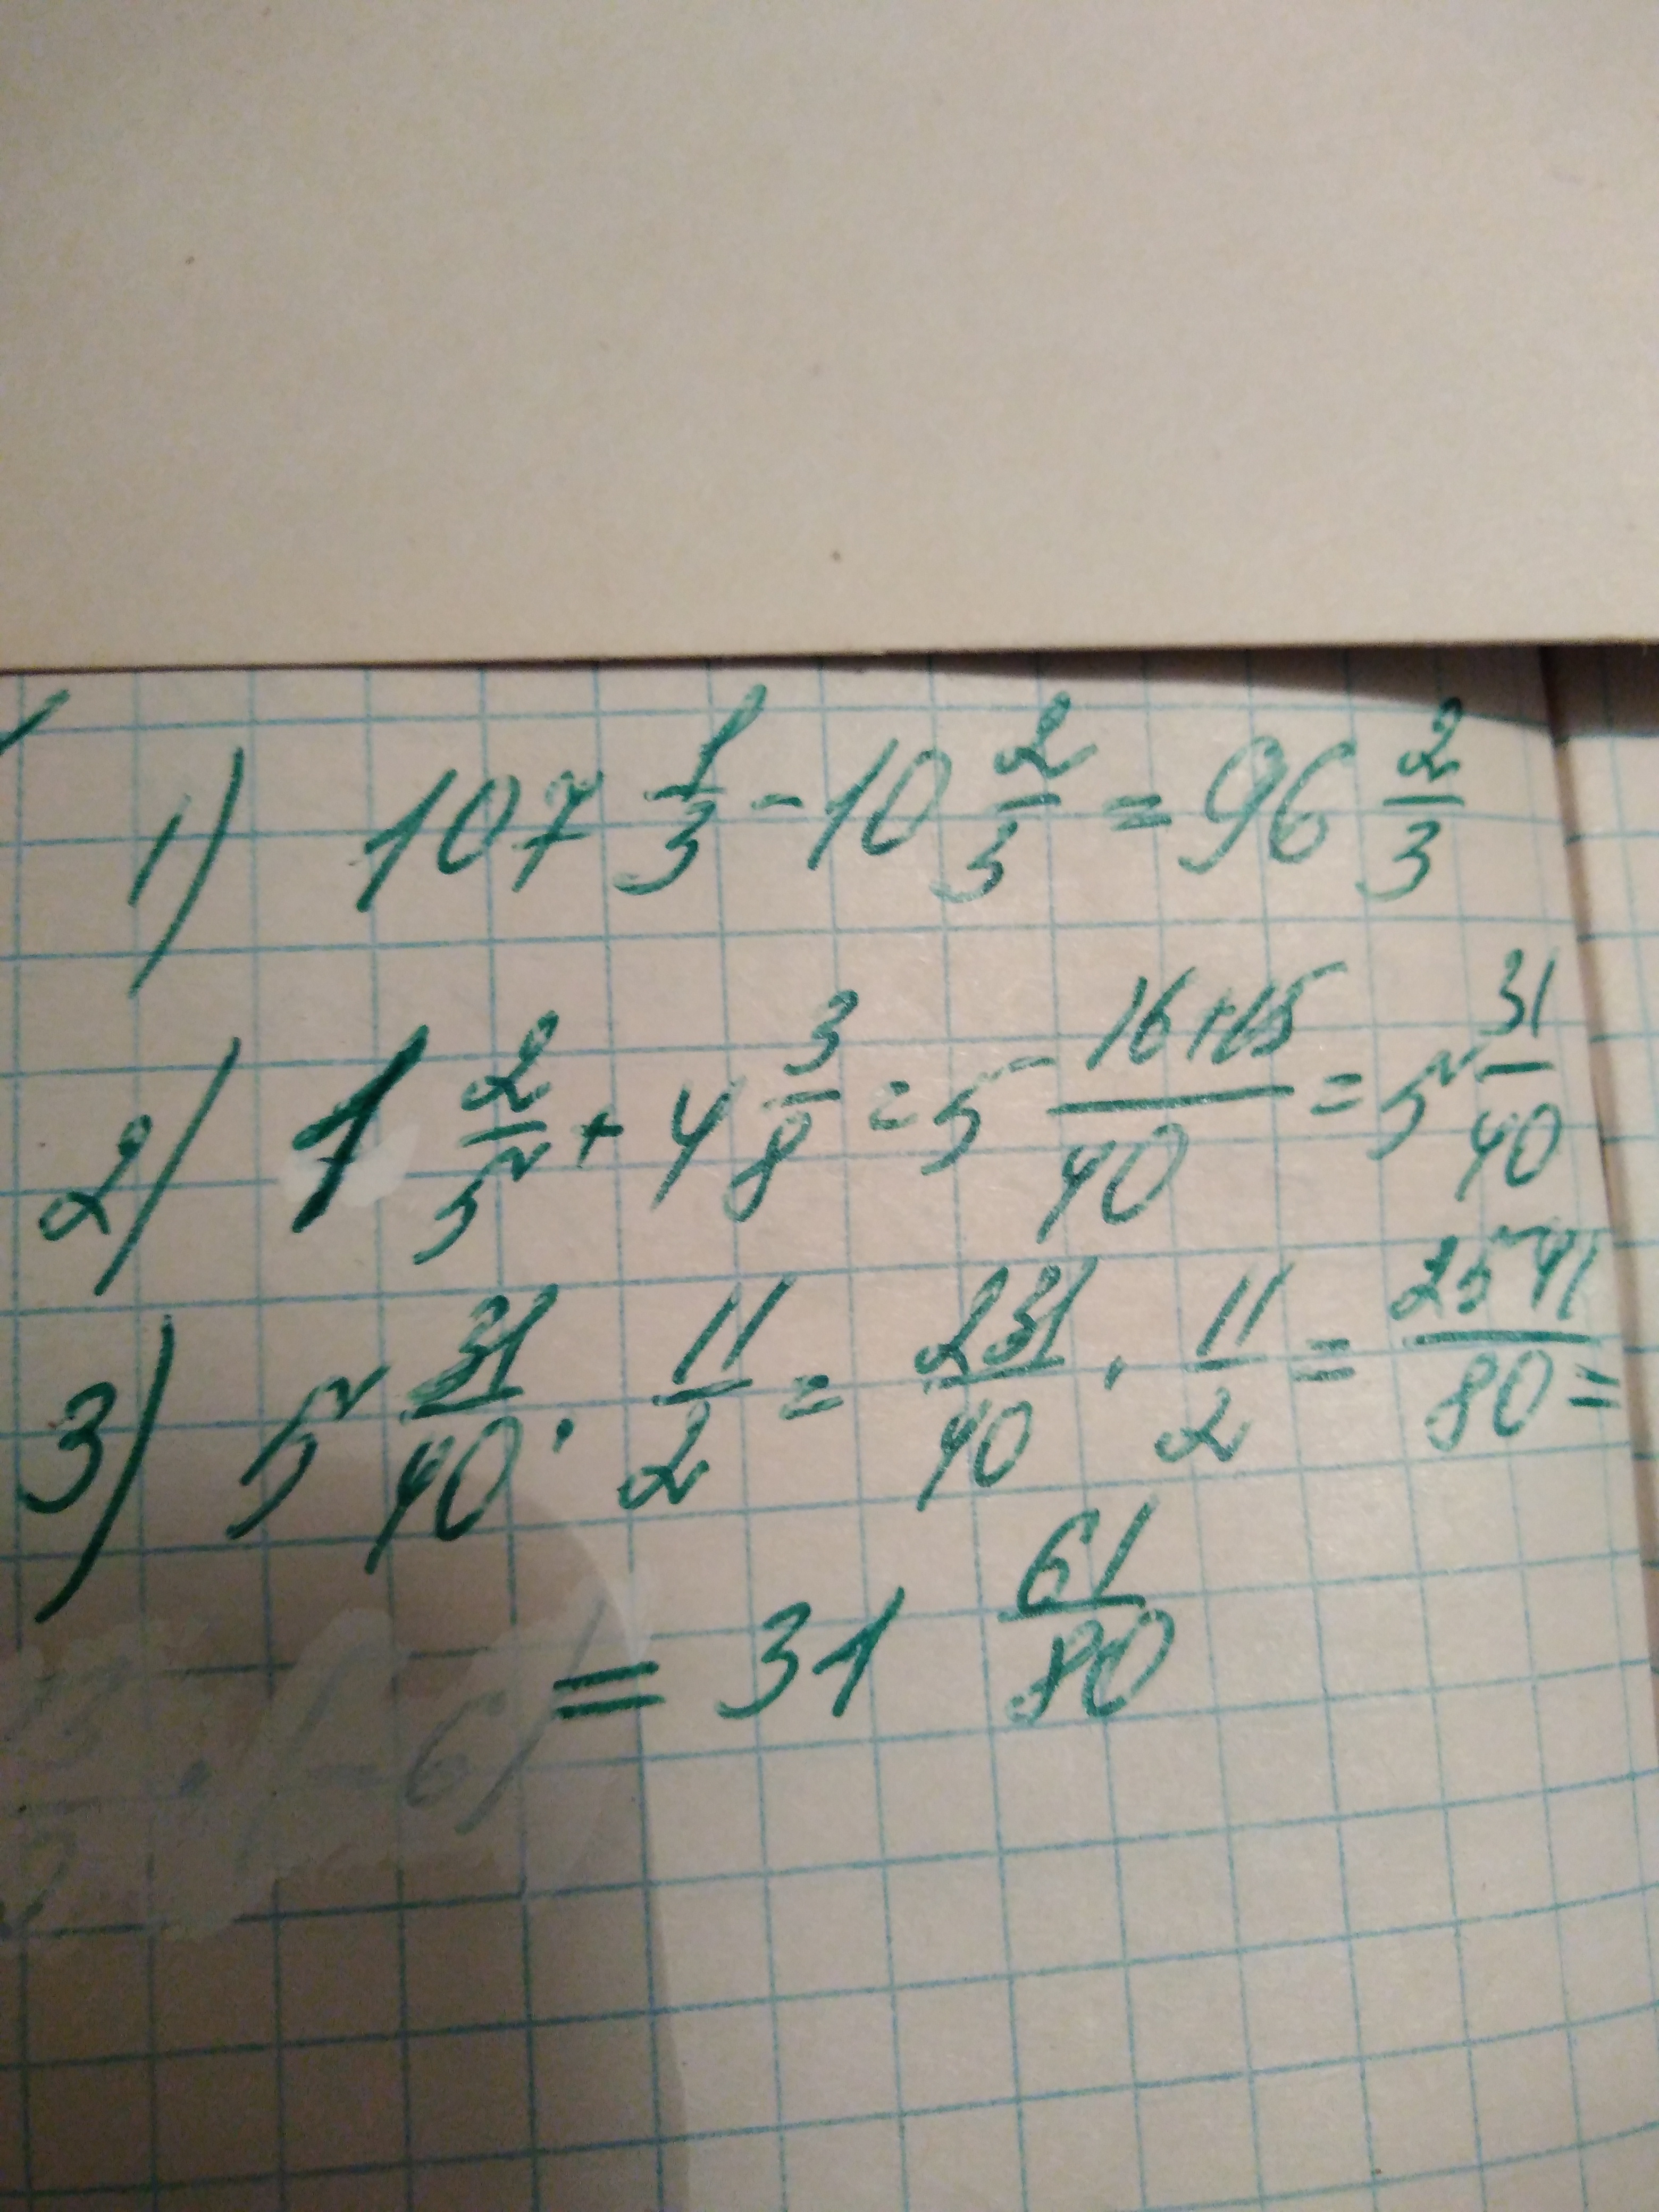 1) 107 1/3 - 10 2/3 = 96 2/3
2) 1 2/5 + 4 3/8 = 5 16+15/40 = 5 31/40
3) 5 31/40 · 11/2 = 231/40 · 11/2 = 2541/80 =
= 31 61/80
· (-6)